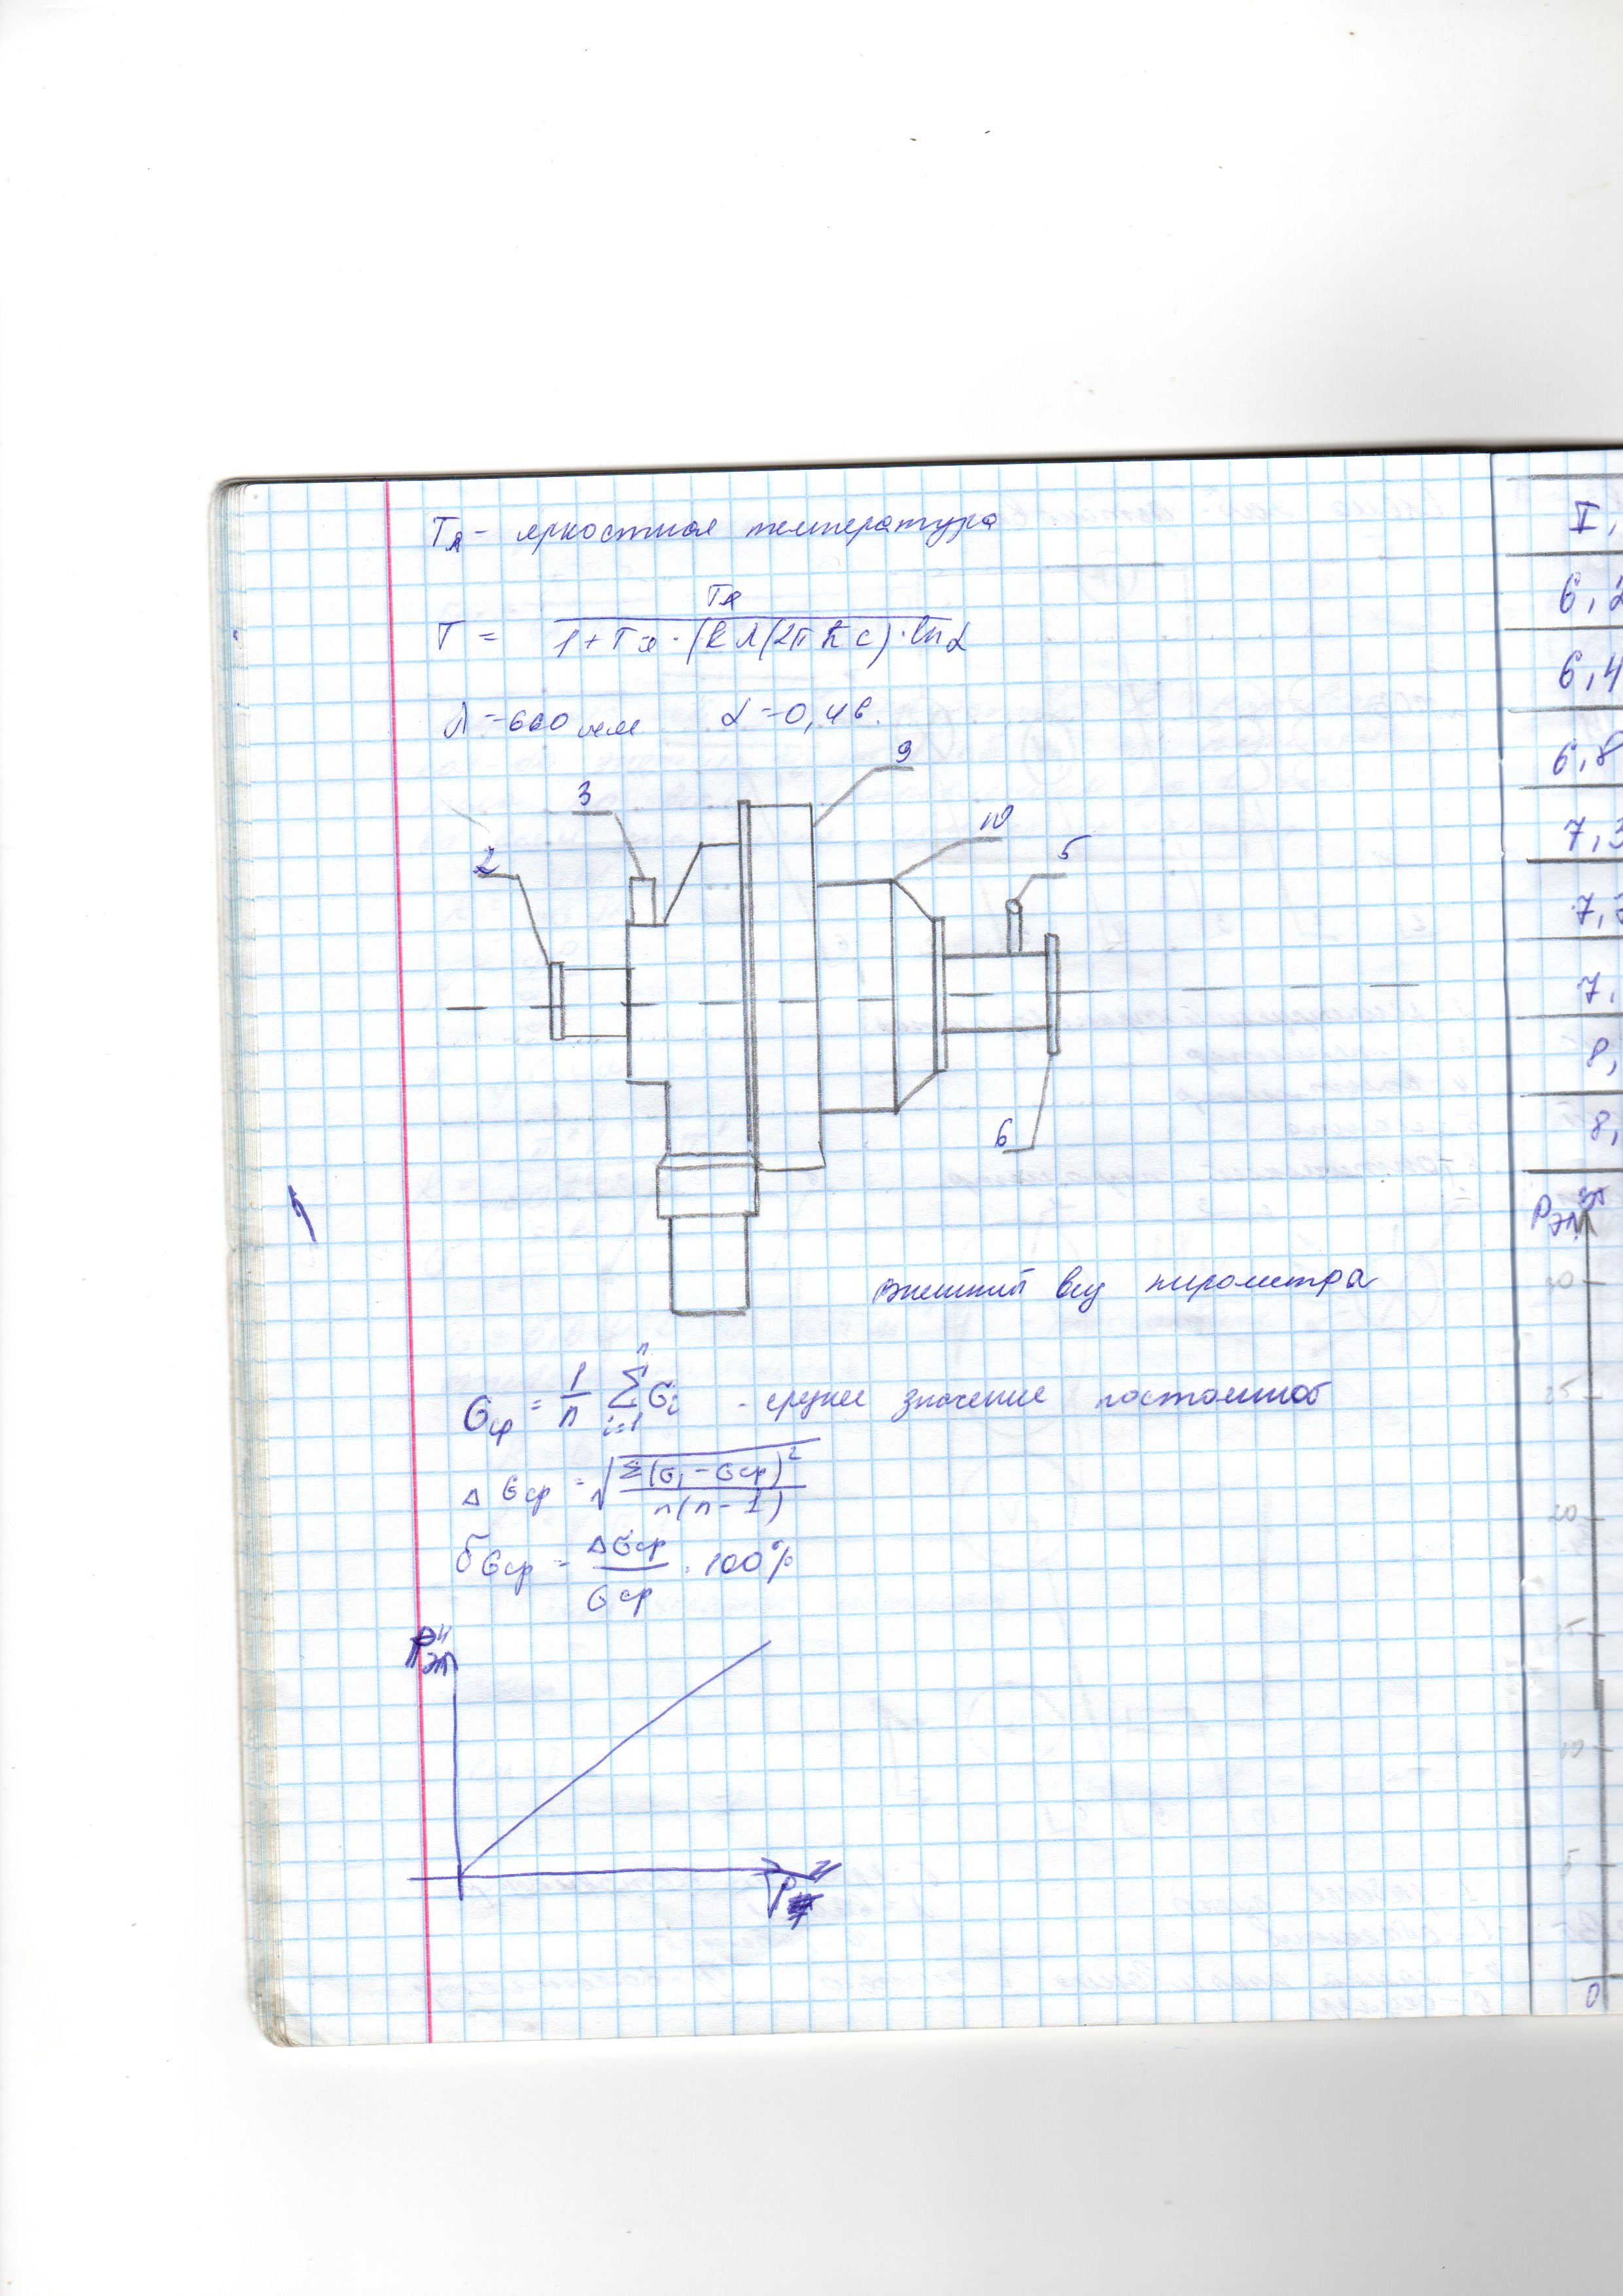 Tя - яркостная температура
Tя
T = 1 + Tя · (kλ(2πħc) · ln α
λ = 660 нм α = 0,46.
9
3
10
2
5
6
внешний вид пирометра
σср = 1/n n∑i=1 σi - среднее значение постоянной
Δσср = √Σ(σi - σср)² / n(n-1)
δσср = Δσср / σср · 100%
Pэл
I,
6,2
6,4
6,8
7,3
7,
8,
8,
Pэл
25
20
15
10
5
0